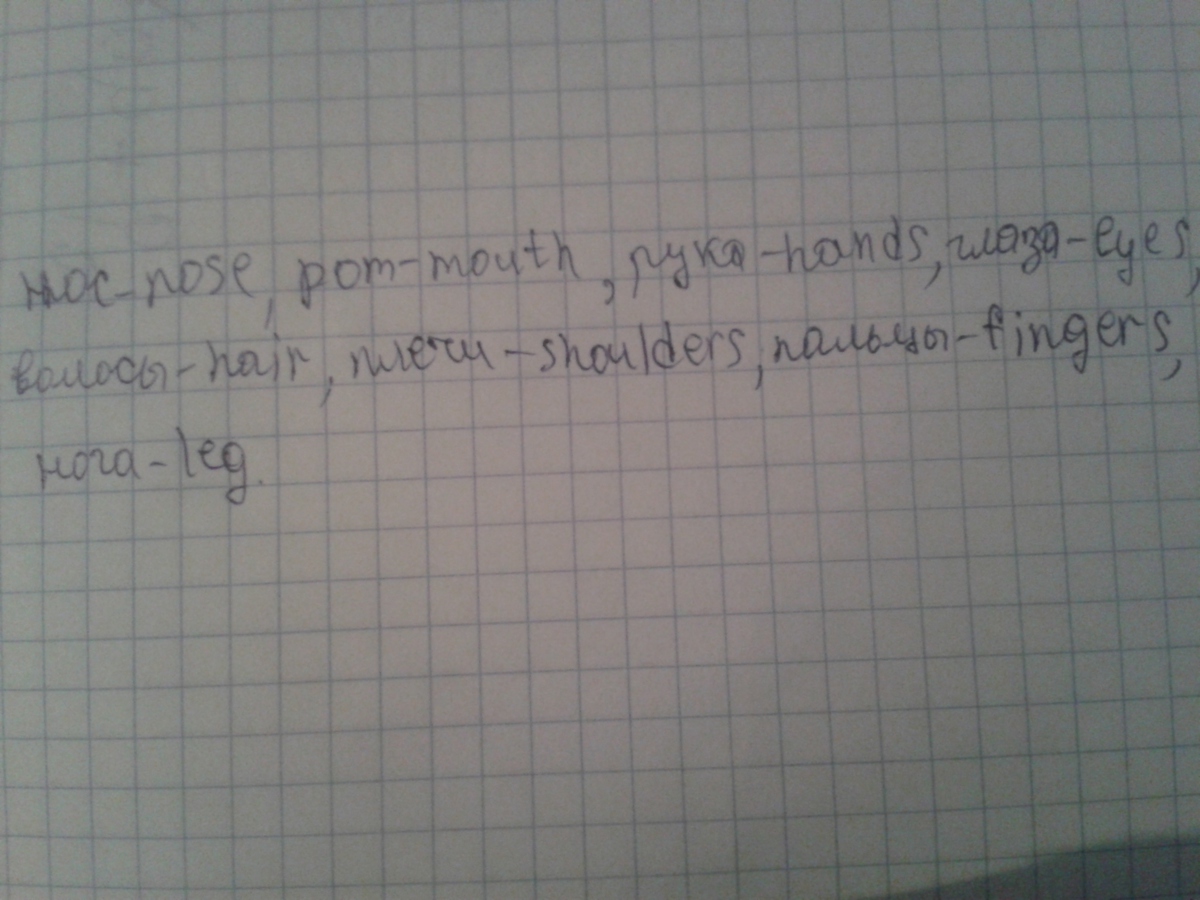 нос-nose, рот-mouth, рука-hands, глаза-eyes,
волосы-hair, плечи-shoulders, пальцы-fingers,
нога-leg.